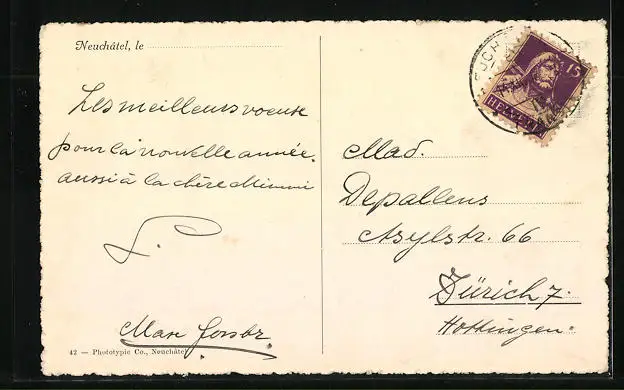 Neuchâtel, le
Les meilleurs voeux
pour la nouvelle année.
aussi à la chère Mimmi
Max
42 — Phototypie Co., Neuchâtel
15
HELVETIA
Mad.
Depallens
Asylstr. 66
Zürich 7.
Hottingen.